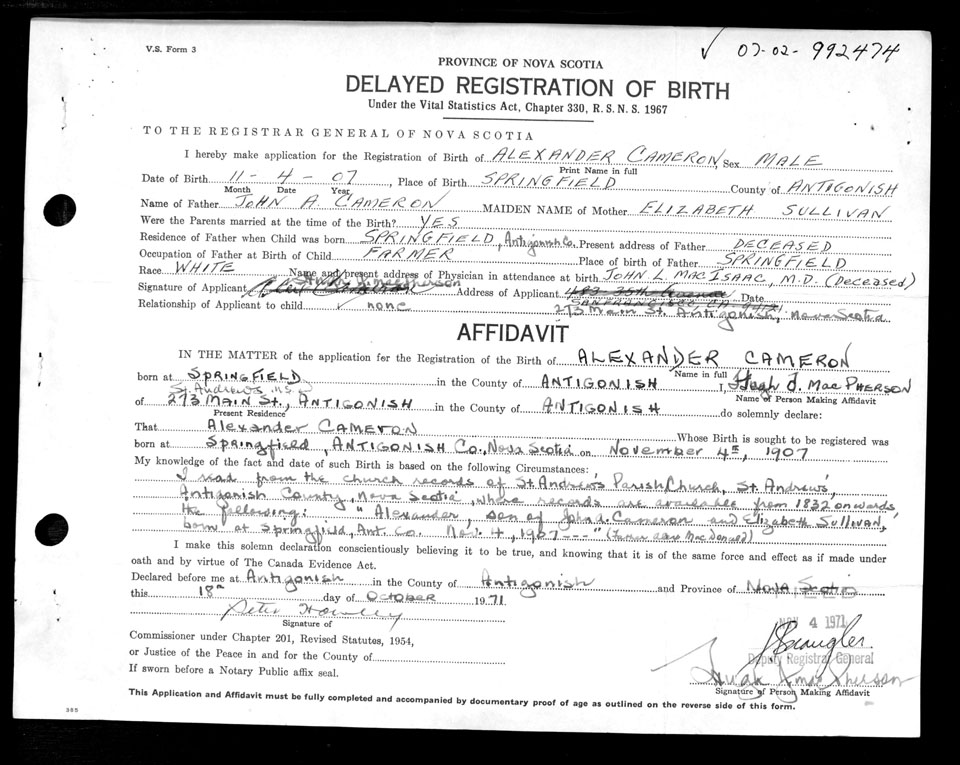 V.S. Form 3
✓ 07-02-992474
PROVINCE OF NOVA SCOTIA
DELAYED REGISTRATION OF BIRTH
Under the Vital Statistics Act, Chapter 330, R.S.N.S. 1967
TO THE REGISTRAR GENERAL OF NOVA SCOTIA
I hereby make application for the Registration of Birth of ALEXANDER CAMERON, Sex MALE
Print Name in full
Date of Birth 11 - 4 - 07, Place of Birth SPRINGFIELD County of ANTIGONISH
Month Date Year
Name of Father JOHN A. CAMERON MAIDEN NAME of Mother ELIZABETH SULLIVAN
Were the Parents married at the time of the Birth? YES
Residence of Father when Child was born SPRINGFIELD, Antigonish Co. Present address of Father DECEASED
Occupation of Father at Birth of Child FARMER Place of birth of Father SPRINGFIELD
Race WHITE Name and present address of Physician in attendance at birth JOHN L. MACISAAC, M.D. (Deceased)
Signature of Applicant Address of Applicant 183 35th Avenue Date
Relationship of Applicant to child ✓ none 273 Main St. Antigonish, Nova Scotia
AFFIDAVIT
IN THE MATTER of the application for the Registration of the Birth of ALEXANDER CAMERON
Name in full
born at SPRINGFIELD in the County of ANTIGONISH I, Hugh J. MacPHERSON
St. Andrews N.S.
Name of Person Making Affidavit
of 273 MAIN St., ANTIGONISH in the County of ANTIGONISH do solemnly declare:
Present Residence
That Alexander CAMERON Whose Birth is sought to be registered was
born at Springfield, ANTIGONISH Co., Nova Scotia on November 4th, 1907
My knowledge of the fact and date of such Birth is based on the following Circumstances:
I read from the church records of St. Andrew's Parish Church, St. Andrew's,
Antigonish County, Nova Scotia, where records are available from 1832 onwards,
the following: "Alexander, son of John A. Cameron and Elizabeth Sullivan,
born at Springfield, Ant. Co. Nov. 4, 1907 ---"
I make this solemn declaration conscientiously believing it to be true, and knowing that it is of the same force and effect as if made under
oath and by virtue of The Canada Evidence Act.
Declared before me at Antigonish in the County of Antigonish and Province of Nova Scotia
this 18th day of October 1971
Peter Howley
Signature of
NOV 4 1971
Commissioner under Chapter 201, Revised Statutes, 1954,
or Justice of the Peace in and for the County of
Deputy Registrar General
If sworn before a Notary Public affix seal.
Hugh J. MacPherson
Signature of Person Making Affidavit
This Application and Affidavit must be fully completed and accompanied by documentary proof of age as outlined on the reverse side of this form.
385